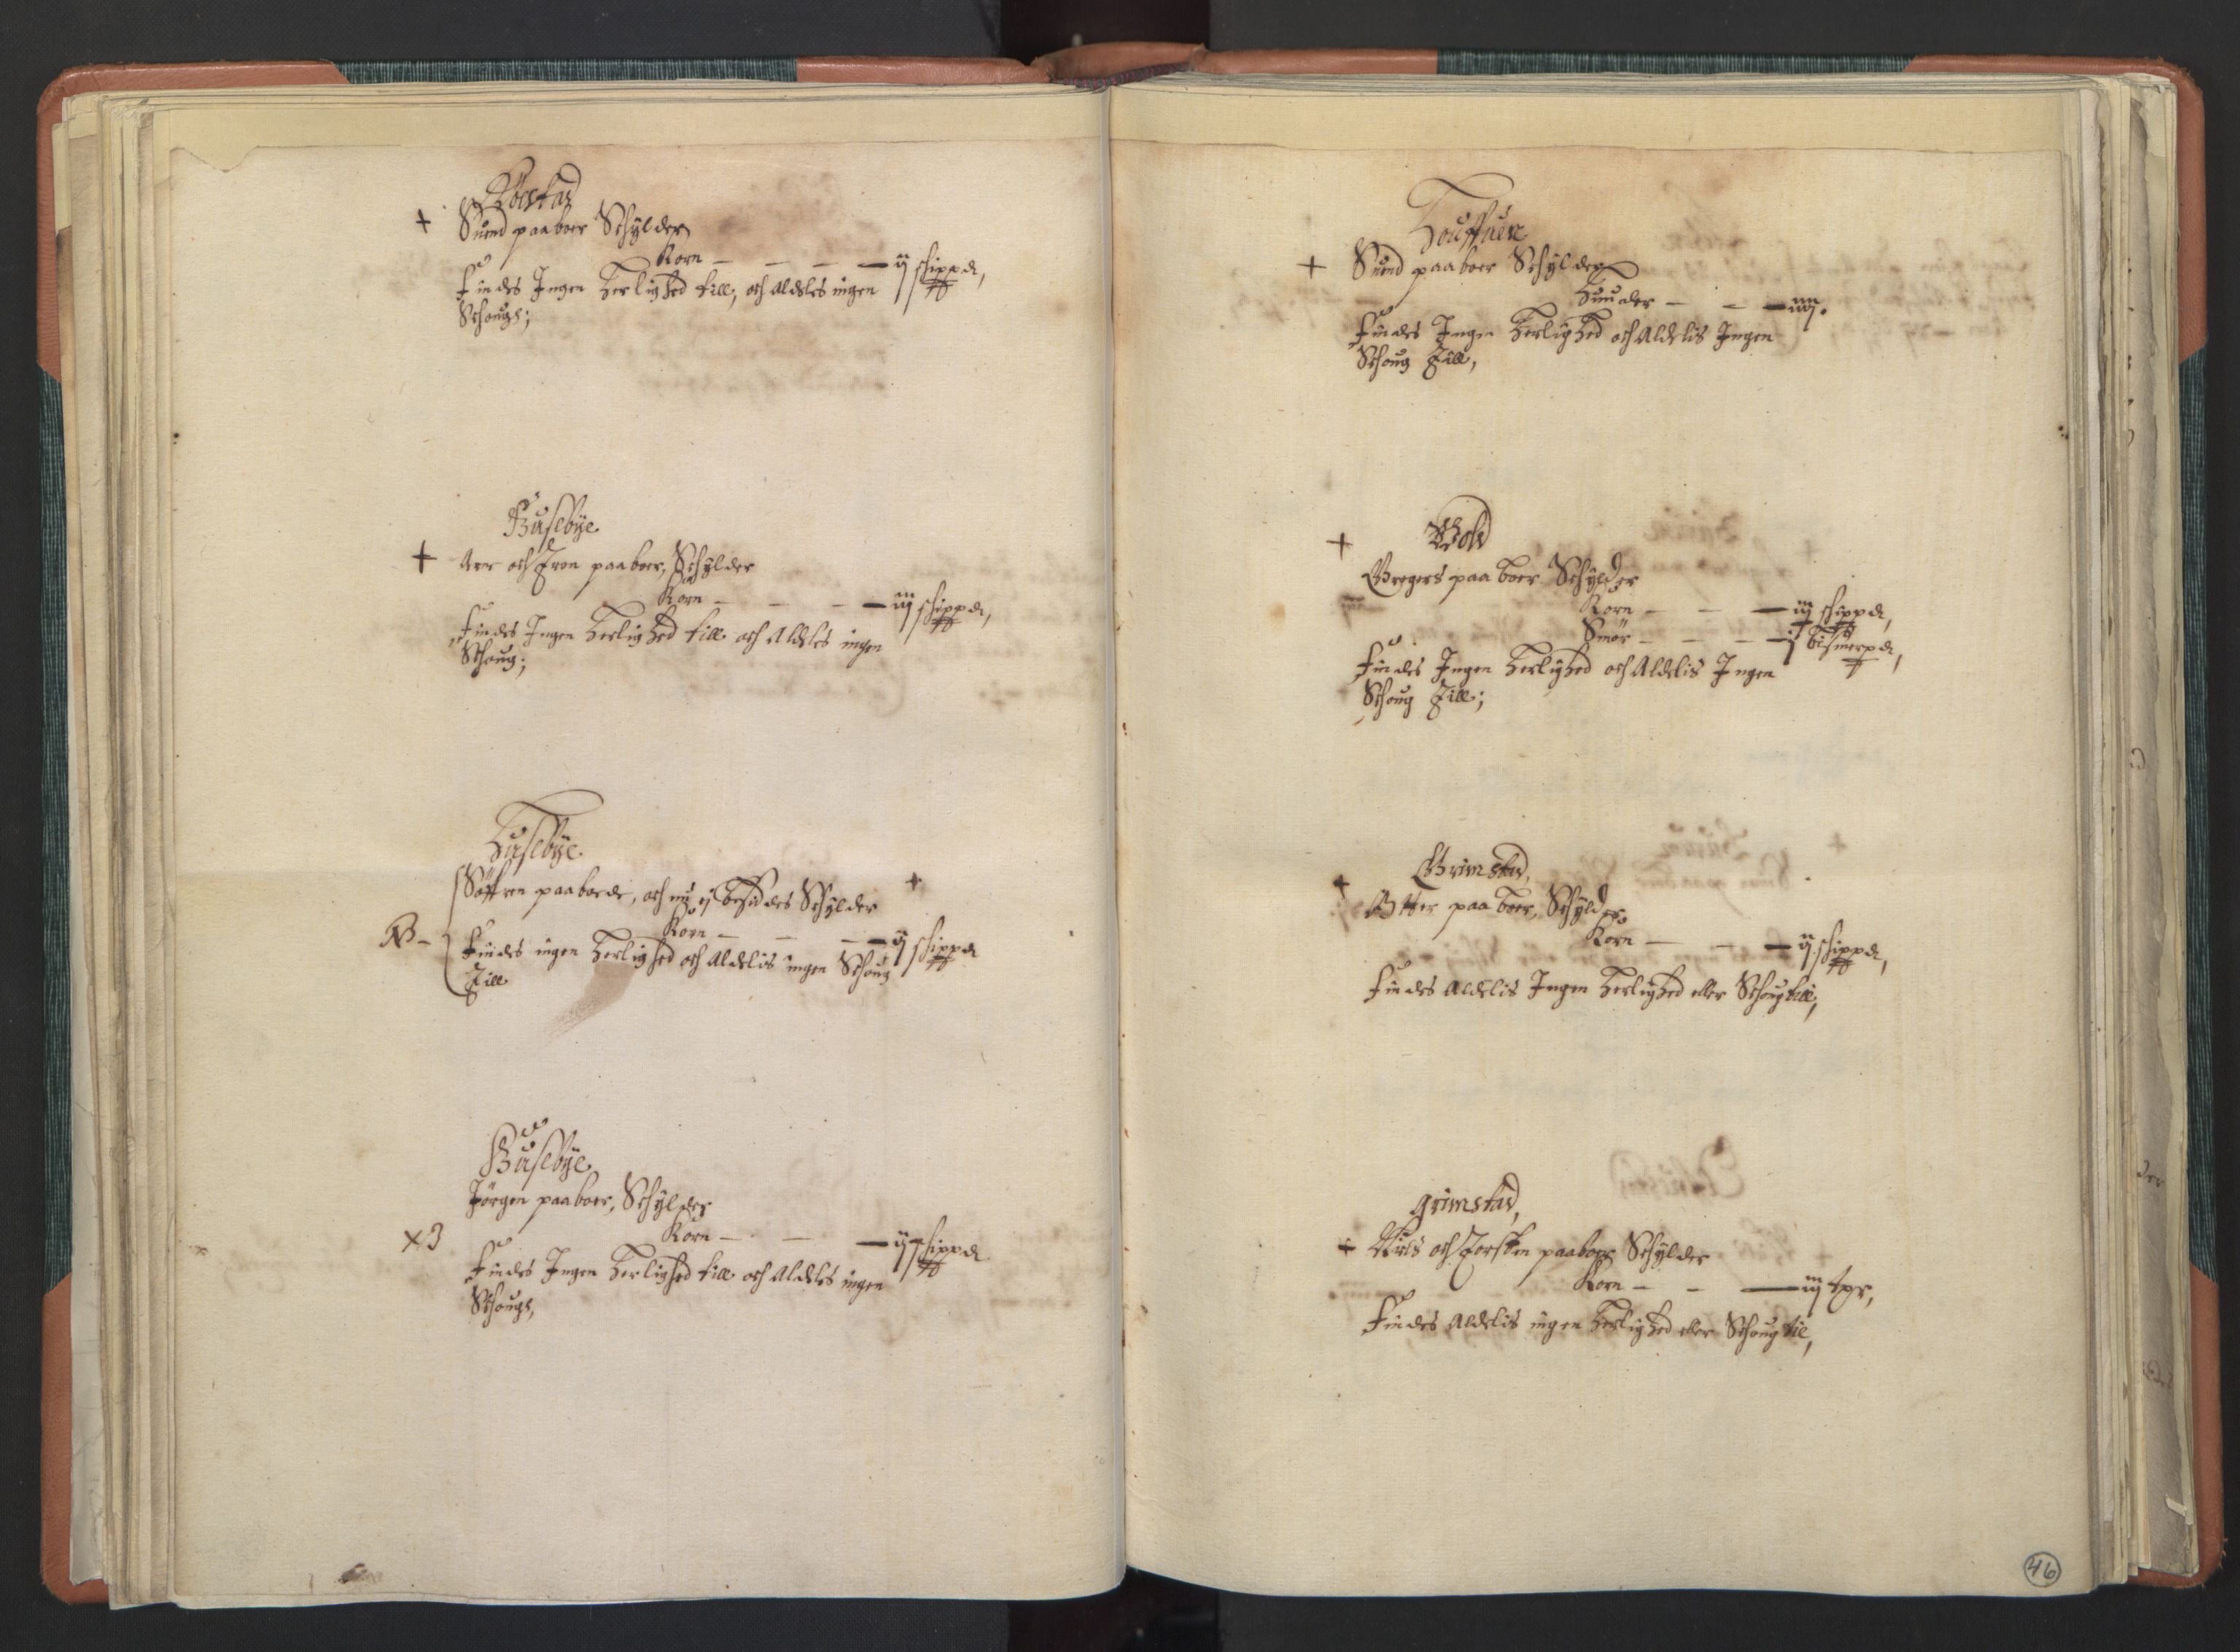 + Suend paaboer Schylder
Korn — — — — ij schippd,
Findes Ingen Herlighed till, och aldeles ingen
Schough;
Busebÿe
+ Arne och Iron paaboer, Schylder
Korn — — — — iij schippd,
Findes Ingen Herlighed till och aldeles ingen
Schoug;
Husebÿe
Söffren paaboede, och nu ej besiddes Schylder +
Korn — — — — ij schippd
NB – Findes ingen Herlighed och aldelis ingen Schoug
Till
Busebÿe
Jörgen paaboer, Schylder
x3 Korn — — — ij schippd
Findes Ingen Herlighed till och aldeles ingen
Schough,
Houffuen
+ Suend paaboer Schylder
Huuder — — — iiij.
Findes Ingen Herlighed och Aldelis Ingen
Schoug Till,
+ Wold
Gregers paaboer Schylder
Korn — — — iij schippd,
Smör — — — — j bismerpd,
Findes Ingen Herlighed och Aldelis Ingen
Schoug Till;
Grimstad,
+ Otter paaboer, Schylder
Korn — — — ij schippd,
Findes Aldelis Ingen Herlighed eller Schoug till,
Grimstad,
+ Niels och Torsten paaboer Schylder
Korn — — — iij tpr,
Findes Aldelis ingen Herlighed eller Schoug til,
46